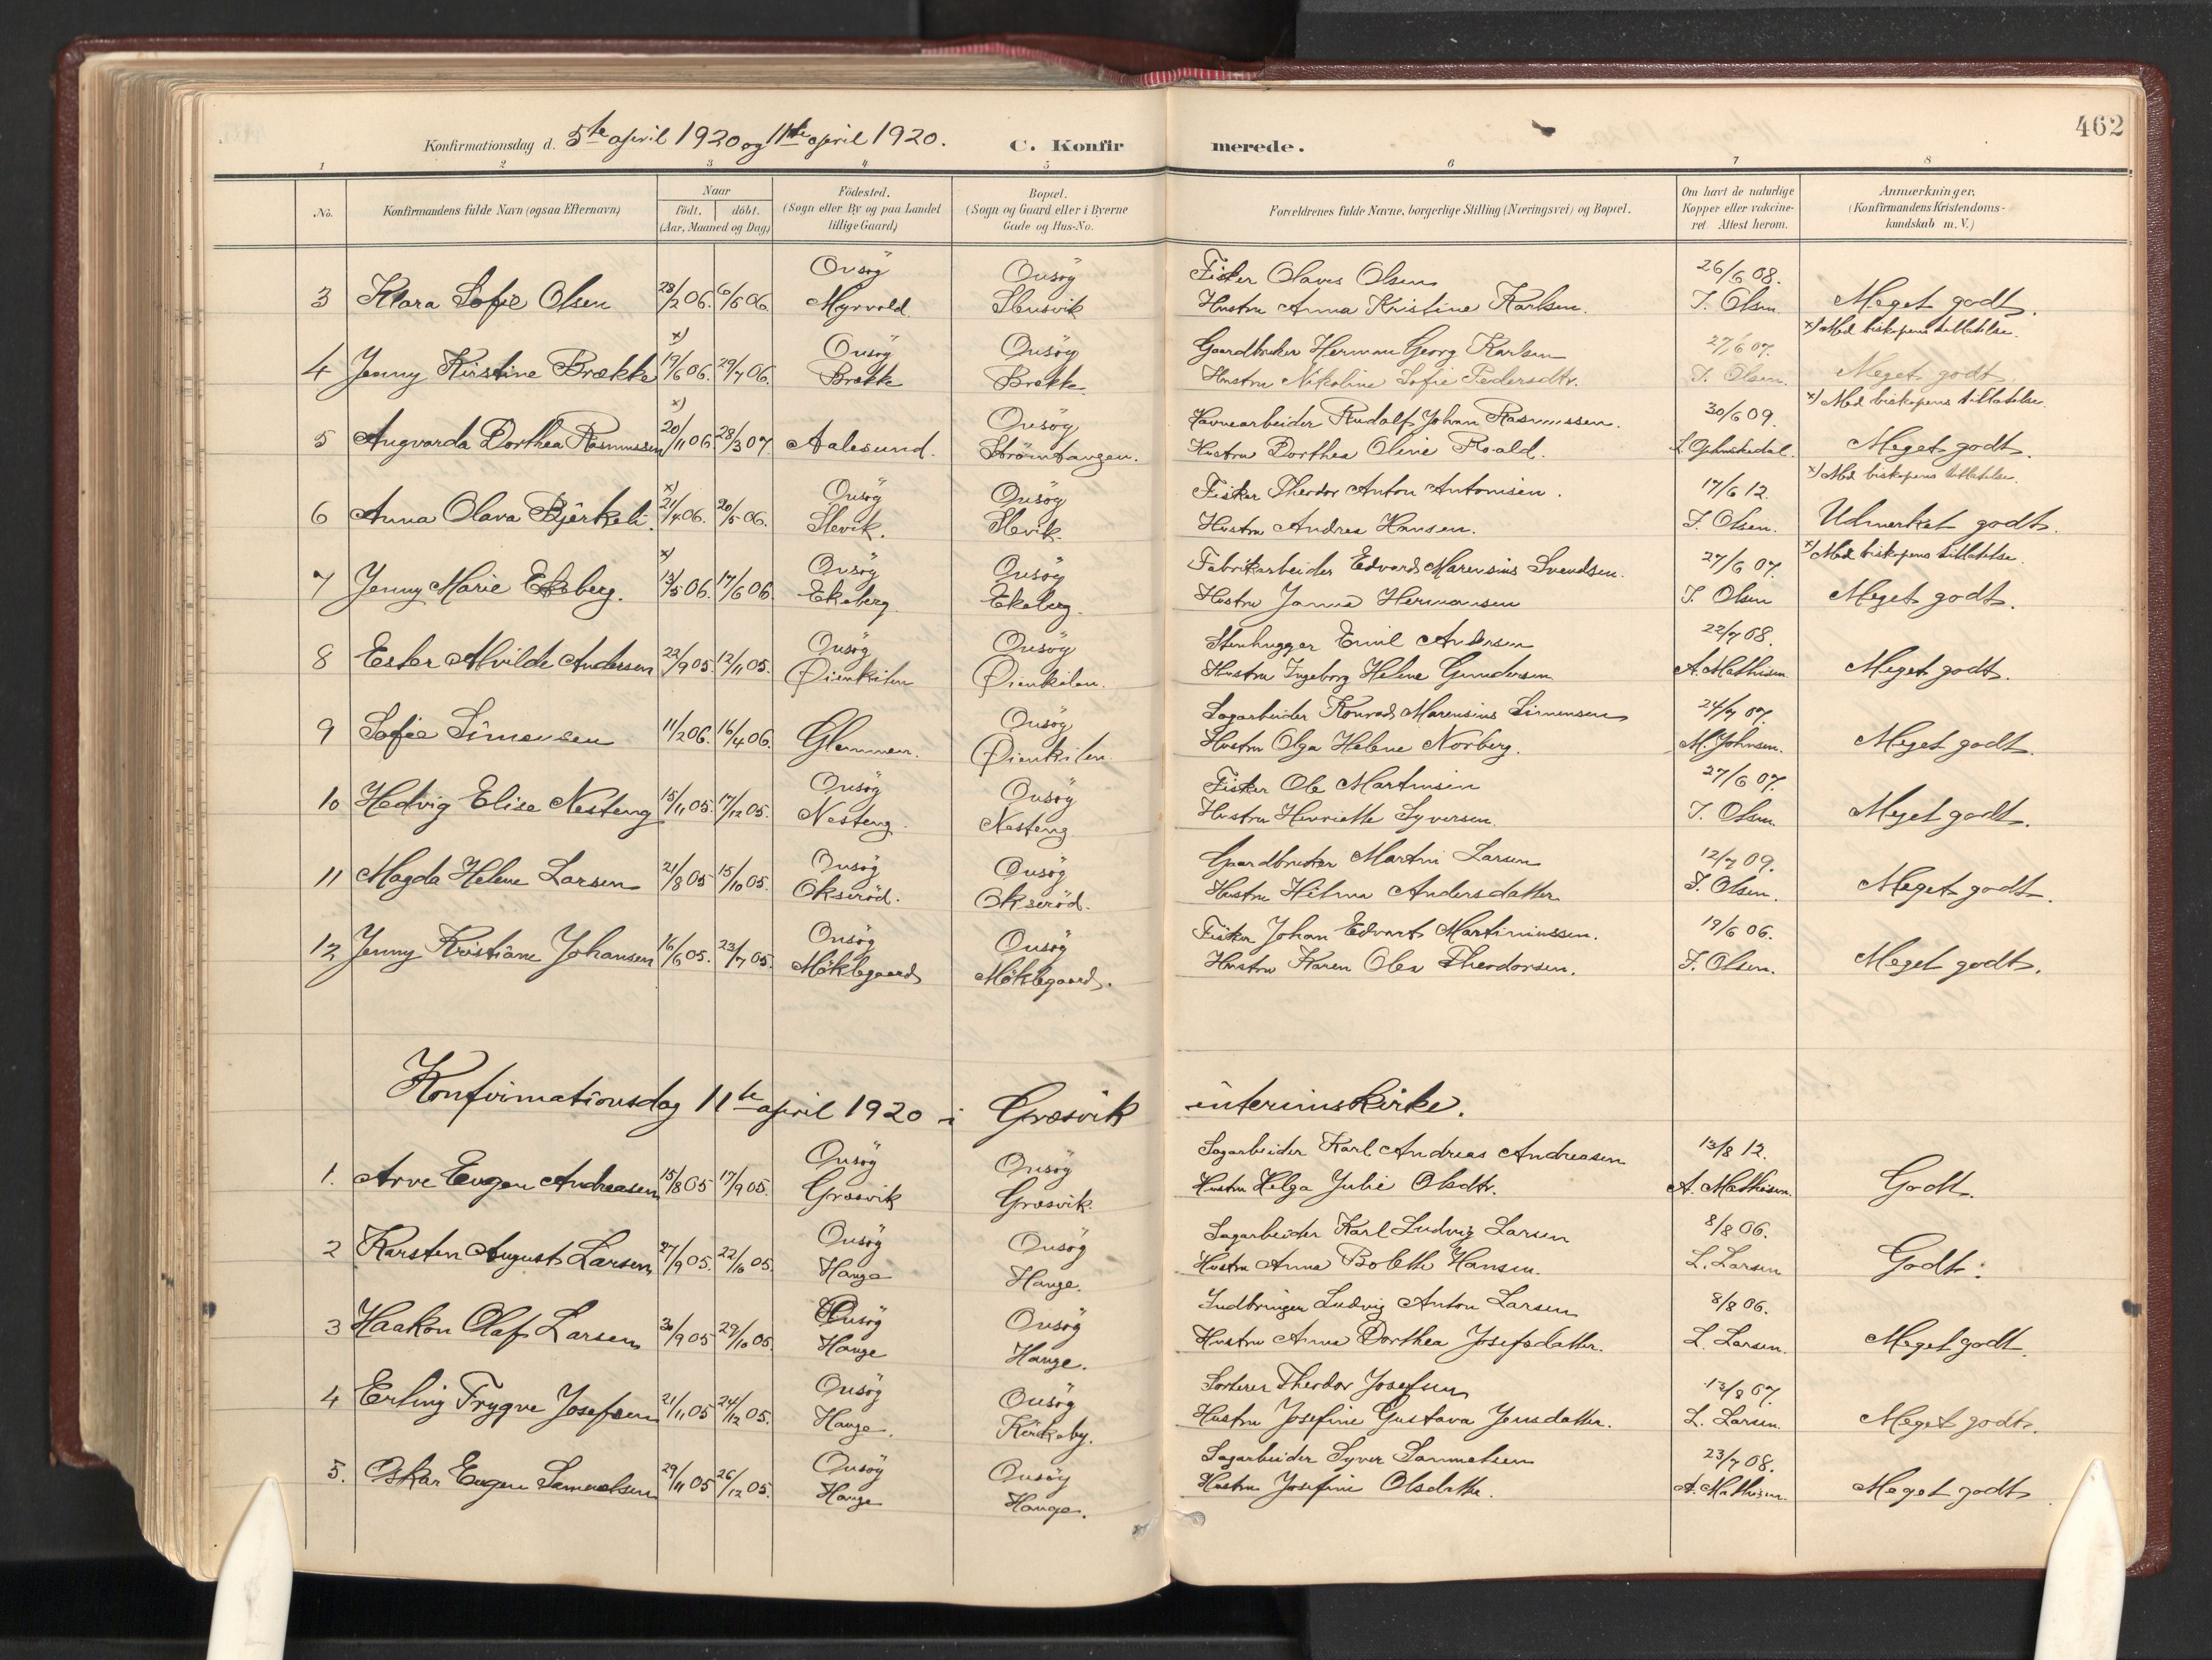 462
Konfirmationsdag d. 5te april 1920 og 11te april 1920. C. Konfirmerede.
1 2 3 4 5 6 7 8
No. Konfirmandens fulde Navn (ogsaa Efternavn) Naar födt. döbt. (Aar, Maaned og Dag) Födested. (Sogn eller By og paa Landet tillige Gaard) Bopæl. (Sogn og Gaard eller i Byerne Gade og Hus-No. Forældrenes fulde Navne, borgerlige Stilling (Næringsvei) og Bopæl. Om havt de naturlige Kopper eller vaccineret Attest herom. Anmærkninger. (Konfirmandens Kristendomskundskab m. V.)
Onsöy Onsöy Fisker Olaves Olsen 26/6 08.
3 Klara Sofie Olsen 28/2 06. 6/6 06. Myrvold. Slensvik Hustru Anna Kristine Karlsen. T. Olsen. Meget godt.
x) Onsöy Onsöy Gaardbruker Herman Georg Karlsen 27/6 07. x) Med biskopens tillatelse.
4 Jenny Kirstine Brække 19/6 06. 29/7 06. Brække Brække. Hustru Nikoline Sofie Pedersdtr. T. Olsen. Meget godt.
x) Onsöy Havnearbeider Rudolf Johan Rasmussen. 30/6 09. x) Med biskopens tillatelse
5 Angvarda Dorthea Rasmussen 20/11 06 28/3 07. Aalesund. Strömtangen. Hustru Dorthea Oline Roald. Meget godt.
x) Onsöy Onsöy Fisker Theodor Anton Antonisen. 17/6 12. x) Med biskopens tillatelse.
6 Anna Olava Björkeli. 21/4 06. 20/5 06. Slevik. Slevik. Hustru Andrea Hansen. T. Olsen. Udmerket godt.
x) Onsöy Onsöy Fabrikarbeider Edvard Marensius Svendsen. 27/6 07. x) Med biskopens tillatelse.
7 Jenny Marie Ekeberg. 13/5 06. 17/6 06. Ekeberg. Ekeberg. Hustru Janna Hermansen T. Olsen Meget godt.
Onsöy Onsöy Stenhugger Emil Andersen 22/7 08.
8 Ester Alvilde Andersen 22/9 05. 12/11 05. Øienkilen Øienkilen. Hustru Ingeborg Helene Gundersen A. Mathisen. Meget godt.
Onsöy Sagarbeider Konrad Marensius Simensen 24/7 07.
9 Sofie Simensen 11/2 06. 16/4 06. Glemmen. Øienkilen. Hustru Olga Helene Norberg. M. Johnsen. Meget godt.
Onsöy Onsöy Fisker Ole Martinsen 27/6 07.
10 Hedvig Elise Nesteng 15/11 05. 17/12 05. Nesteng. Nesteng Hustru Henriette Syversen. T. Olsen. Meget godt.
Onsöy Onsöy Gaardbruker Martin Larsen 12/7 09.
11 Magda Helene Larsen 21/8 05 15/10 05. Okseröd. Okseröd. Hustru Hilma Andersdatter. T. Olsen. Meget godt.
Onsöy Onsöy Fisker Johan Edvart Martiniussen. 19/6 06.
12 Jenny Kristiane Johansen 16/6 05. 23/7 05. Möklegaard Möklegaard. Hustru Karen Olea Theodorsen. T. Olsen. Meget godt.
Konfirmationsdag 11te april 1920 i Græsvik interimskirke.
Onsöy Onsöy Sagarbeider Karl Andreas Andreasen 13/8 12.
1. Arve Eugen Andreasen 15/8 05 17/9 05. Græsvik Græsvik. Hustru Helga Julie Olsdtr. A. Mathisen. Godt.
Onsöy Onsöy Sagarbeider Karl Ludvig Larsen 8/8 06.
2 Karsten August Larsen 27/9 05. 22/10 05. Hauge Hauge. Hustru Anna Bolette Hansen. L. Larsen Godt.
Onsöy Onsöy Indbringer Ludvig Anton Larsen 8/8 06.
3 Haakon Olaf Larsen 30/9 05 29/10 05. Hauge Hauge. Hustru Anna Dorthea Josefsdatter. L. Larsen. Meget godt.
Onsöy Onsöy Sorterer Theodor Josefsen 13/8 07.
4 Erling Trygve Josefsen 21/11 05 24/12 05. Hauge. Kirkeby. Hustru Josefine Gustava Jensdatter. L. Larsen. Meget godt.
Onsöy Onsöy Sagarbeider Syver Samuelsen 23/7 08.
5. Oskar Eugen Samuelsen 29/11 05 26/12 05. Hauge Hauge. Hustru Josefine Olsdatter. A. Mathisen. Meget godt.